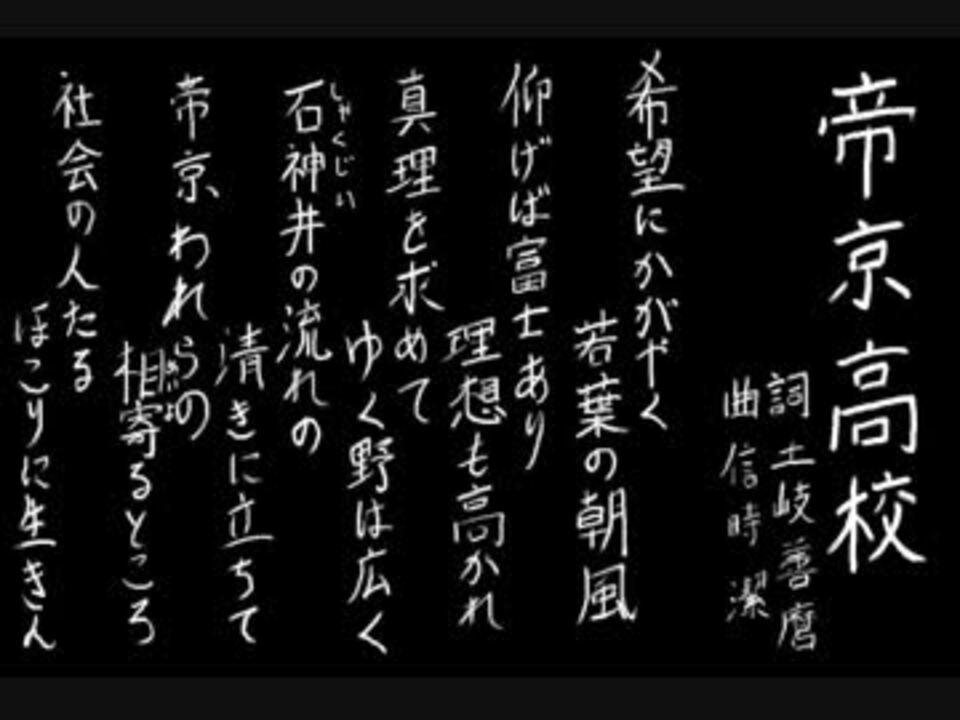 帝京高校
詞 土岐善麿
曲 信時 潔
希望にかがやく
若葉の朝風
仰げば富士あり
理想も高かれ
真理を求めて
ゆく野は広く
しゃくじい
石神井の流れの
清きに立ちて
帝京われらの
あいよ
相寄るところ
社会の人たる
ほこりに生きん